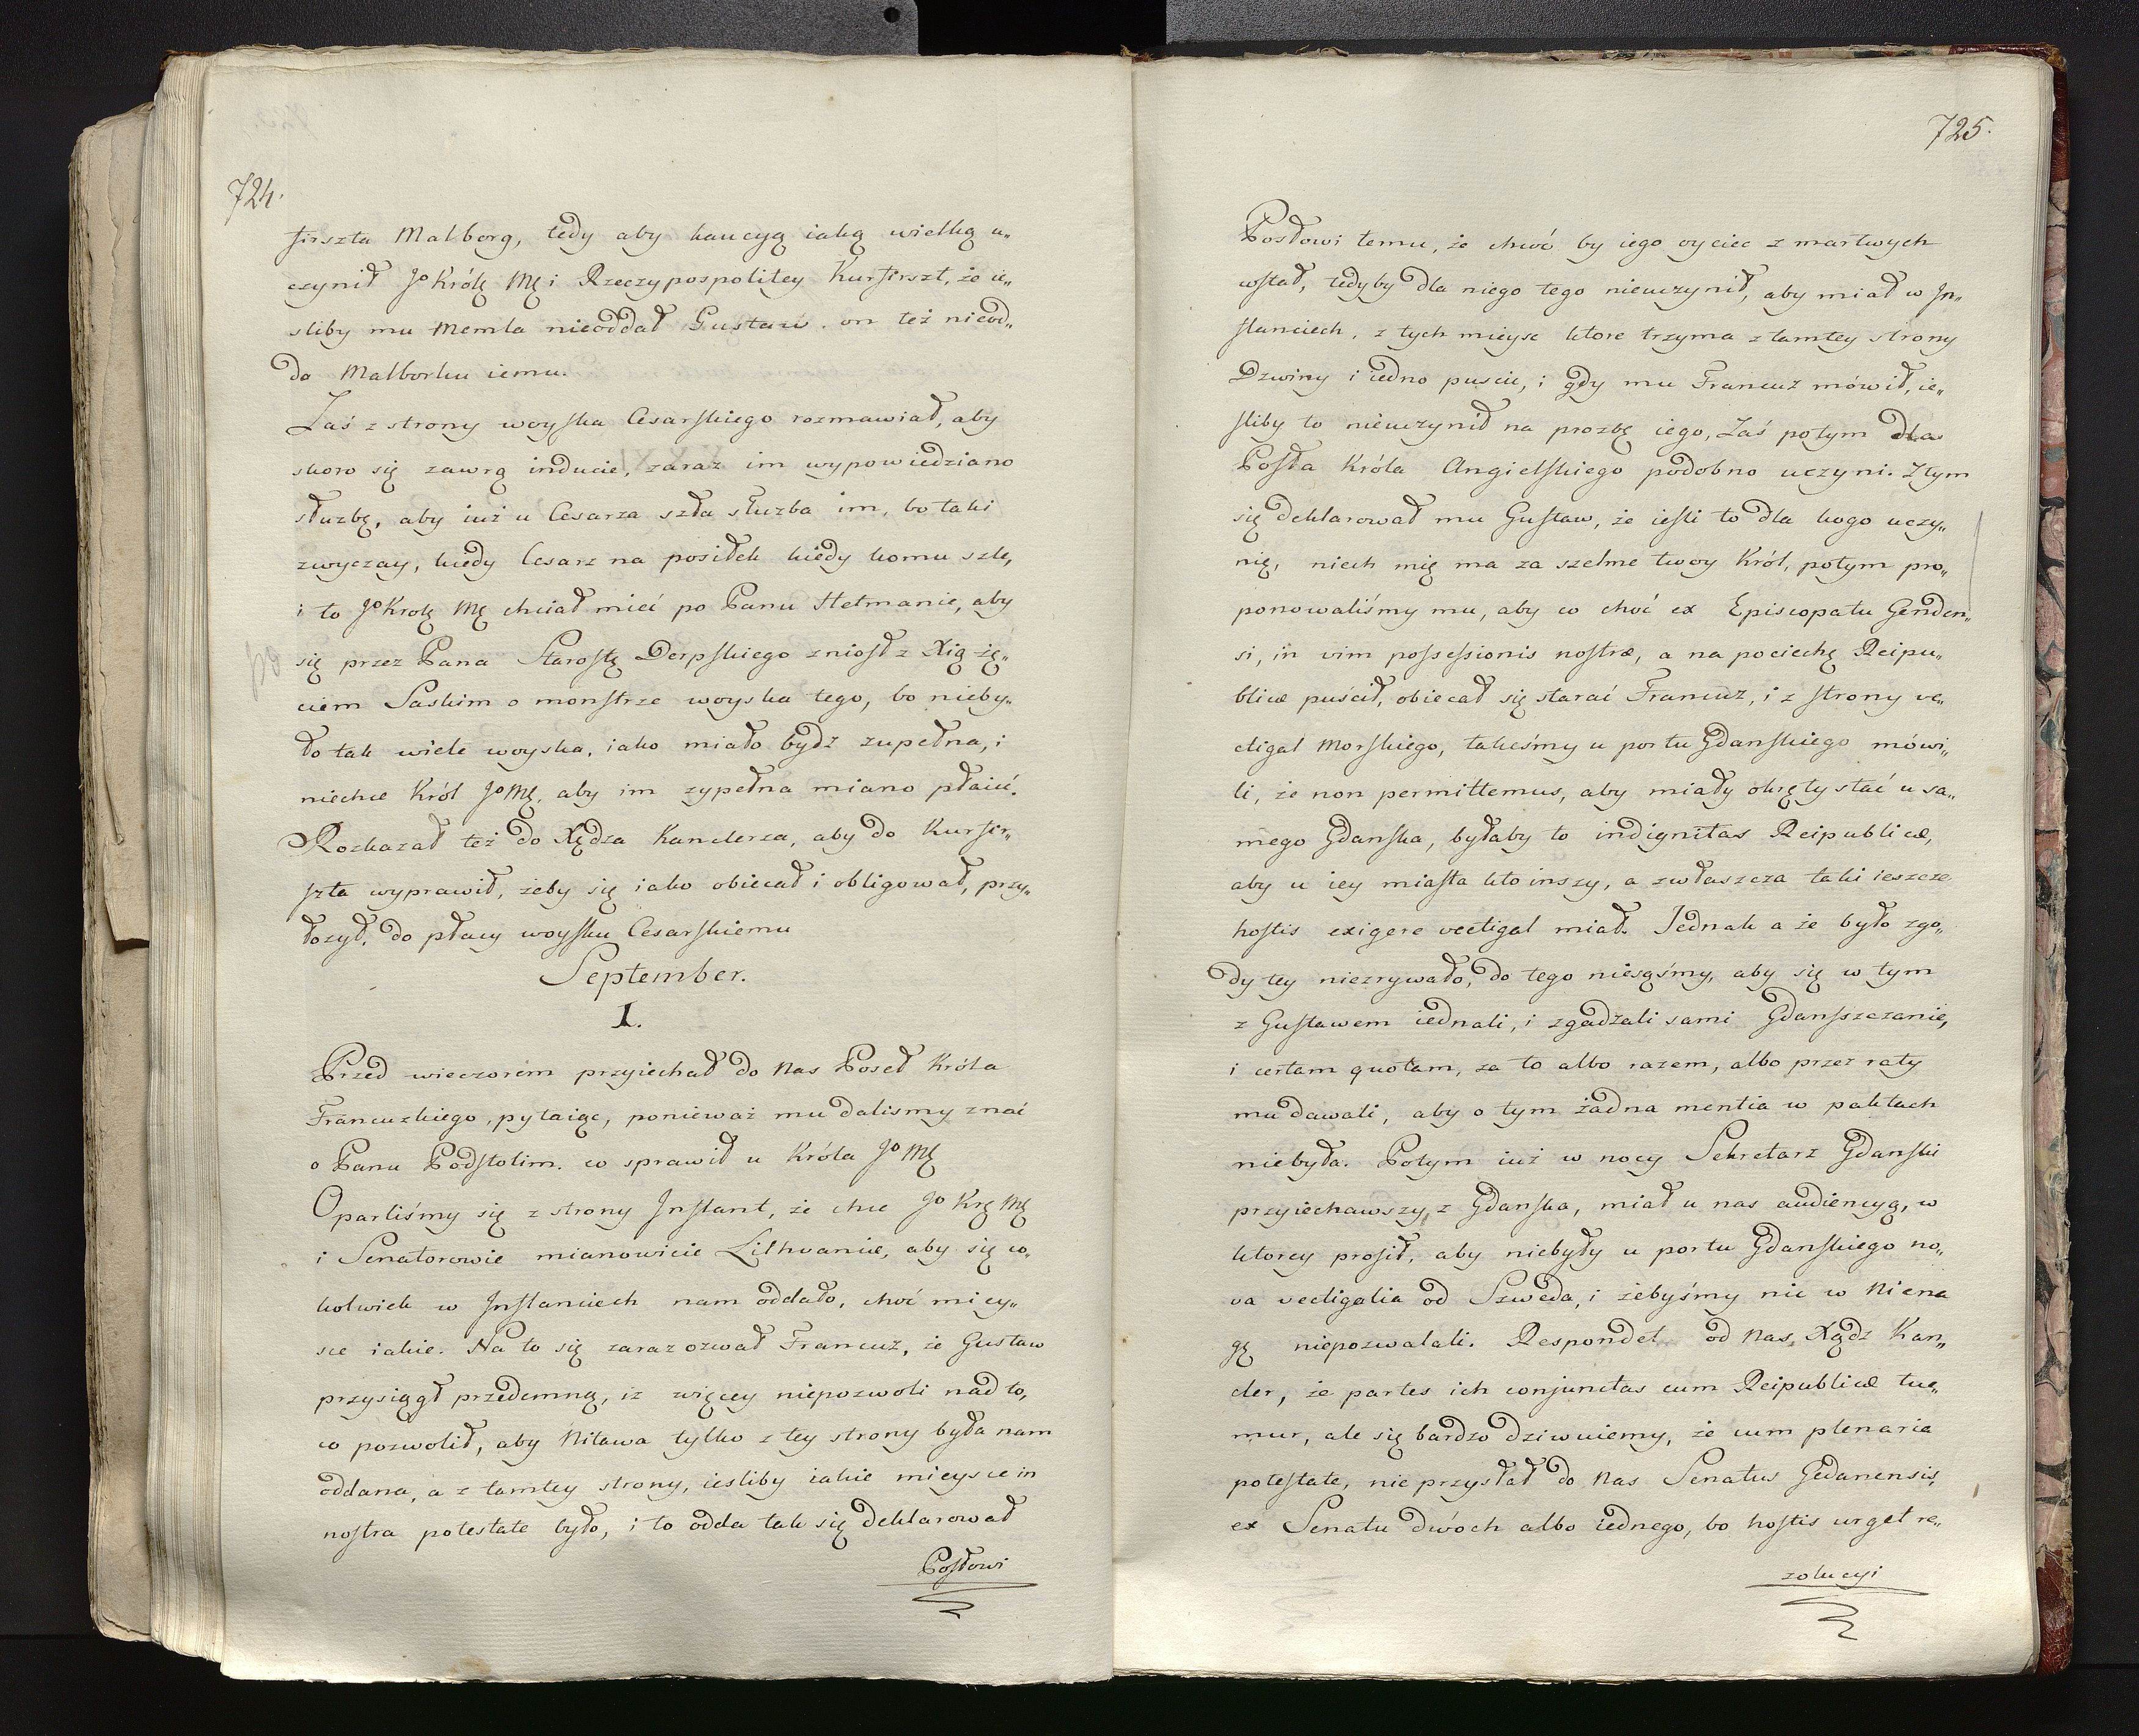 724.
firszta Malborg, tedy aby kaucyą iaką wielką u„
czynił Jº Królę Mę i Rzeczypospolitey Kurfirszt, że ie„
sliby mu Memla nieoddał Gustaw. on też nieod„
da Malborku iemu.
Zaś z strony woyska Cesarskiego rozmawiał, aby
skoro się zawrą inducie, zaraz im wypowiedziano
służbę, aby iuż u Cesarza szła służba im, bo taki
zwyczay, kiedy Cesarz na posiłek kiedy komu szle,
i to Jº Krolę Mę chciał mieć po Panu Hetmanie, aby
się przez Pana Starostę Derpskiego zniosł z Xią żę„
ciem Saskim o monstrze woyska tego, bo nieby„
ło tak wiele woyska, iako miało bydz zupełna, i
niechce Król Jº Mę, aby im zypełna miano płaić.
Rozkazał też do Xędza Kanclerza, aby do Kurfir„
szta wyprawił, żeby się iako obiecał i obligował, przy„
łozył, do płacy woysku Cesarskiemu
September.
1.
Przed wieczorem przyiechał do Nas Poseł Króla
Francuzkiego, pytaiąc, ponieważ mu dalismy znać
o Panu Podstolim. co sprawił u Króla Jº Mę
Oparliśmy się z strony Inflant, że chce Jº Krę Mę
i Senatorowie mianowicie Lithvaniæ, aby się co„
kolwiek w Inflanciech nam oddało, choć miey„
sce iakie. Na to się zaraz ozwał Francuz, że Gustaw
przysiągł przedemną, iz więcey niepozwoli nad to,
co pozwolił, aby Mitawa tylko z tey strony była nam
oddana, a z tamtey strony, iesliby iakie mieysce in
nostra potestate było, i to odda tak się deklarował
Posłowi
725.
Posłowi temu, że choć by iego oyciec z martwych
wstał, tedyby dla niego tego nieuczynił, aby miał w In„
flanciech, z tych mieysc ktore trzyma z tamtey strony
Dzwiny i iedno puscic, i gdy mu Francuz mówił, ie„
sliby to nieuczynił na prozbę iego, Zaś potym dla
Posła Króla Angielskiego podobno uczyni. Ztym
się deklarował mu Gustaw, że iesli to dla kogo uczy„
nię, niech mię ma za szelme twoy Król, potym pro„
ponowaliśmy mu, aby co choć ex Episcopatu Genden„
si, in vim possessionis nostræ, a na pociechę Reipu„
blicæ puścił, obiecał się starać Francuz, i z strony ve„
ctigal Morskiego, takeśmy u portu Gdanskiego mówi„
li, że non permittemus, aby miały okręty stać u sa„
mego Gdanska, byłaby to indignitas Reipublicæ,
aby u iey miasta kto inszy, a zwłaszcza taki ieszcze
hostis exigere vectigal miał. Jednak a że było zgo„
dy tey niezrywało, do tego niesąśmy, aby się w tym
z Gustawem iednali, i zgadzali sami Gdanszczanie,
i certam quotam, za to albo razem, albo przez raty
mu dawali, aby o tym żadna mentia w paktach
niebyła. Potym iuż w nocy Sekretarz Gdanski
przyiechawszy, z Gdanska, miał u nas audiencyą, w
ktorey prosił, aby niebyły u portu Gdanskiego no„
va vectigalia od Szweda, i żebyśmy nic w Niena
gę niepozwalali. Respondet od Nas, Xądz Kan„
cler, że partes ich conjunctas cum Reipublicæ tue„
mur, ale się bardzo dziwuiemy, że cum plenaria
potestate, nie przysłał do Nas Senatus Gedanensis,
ex Senatu dwóch albo iednego, bo hostis urget re„
zolucyi